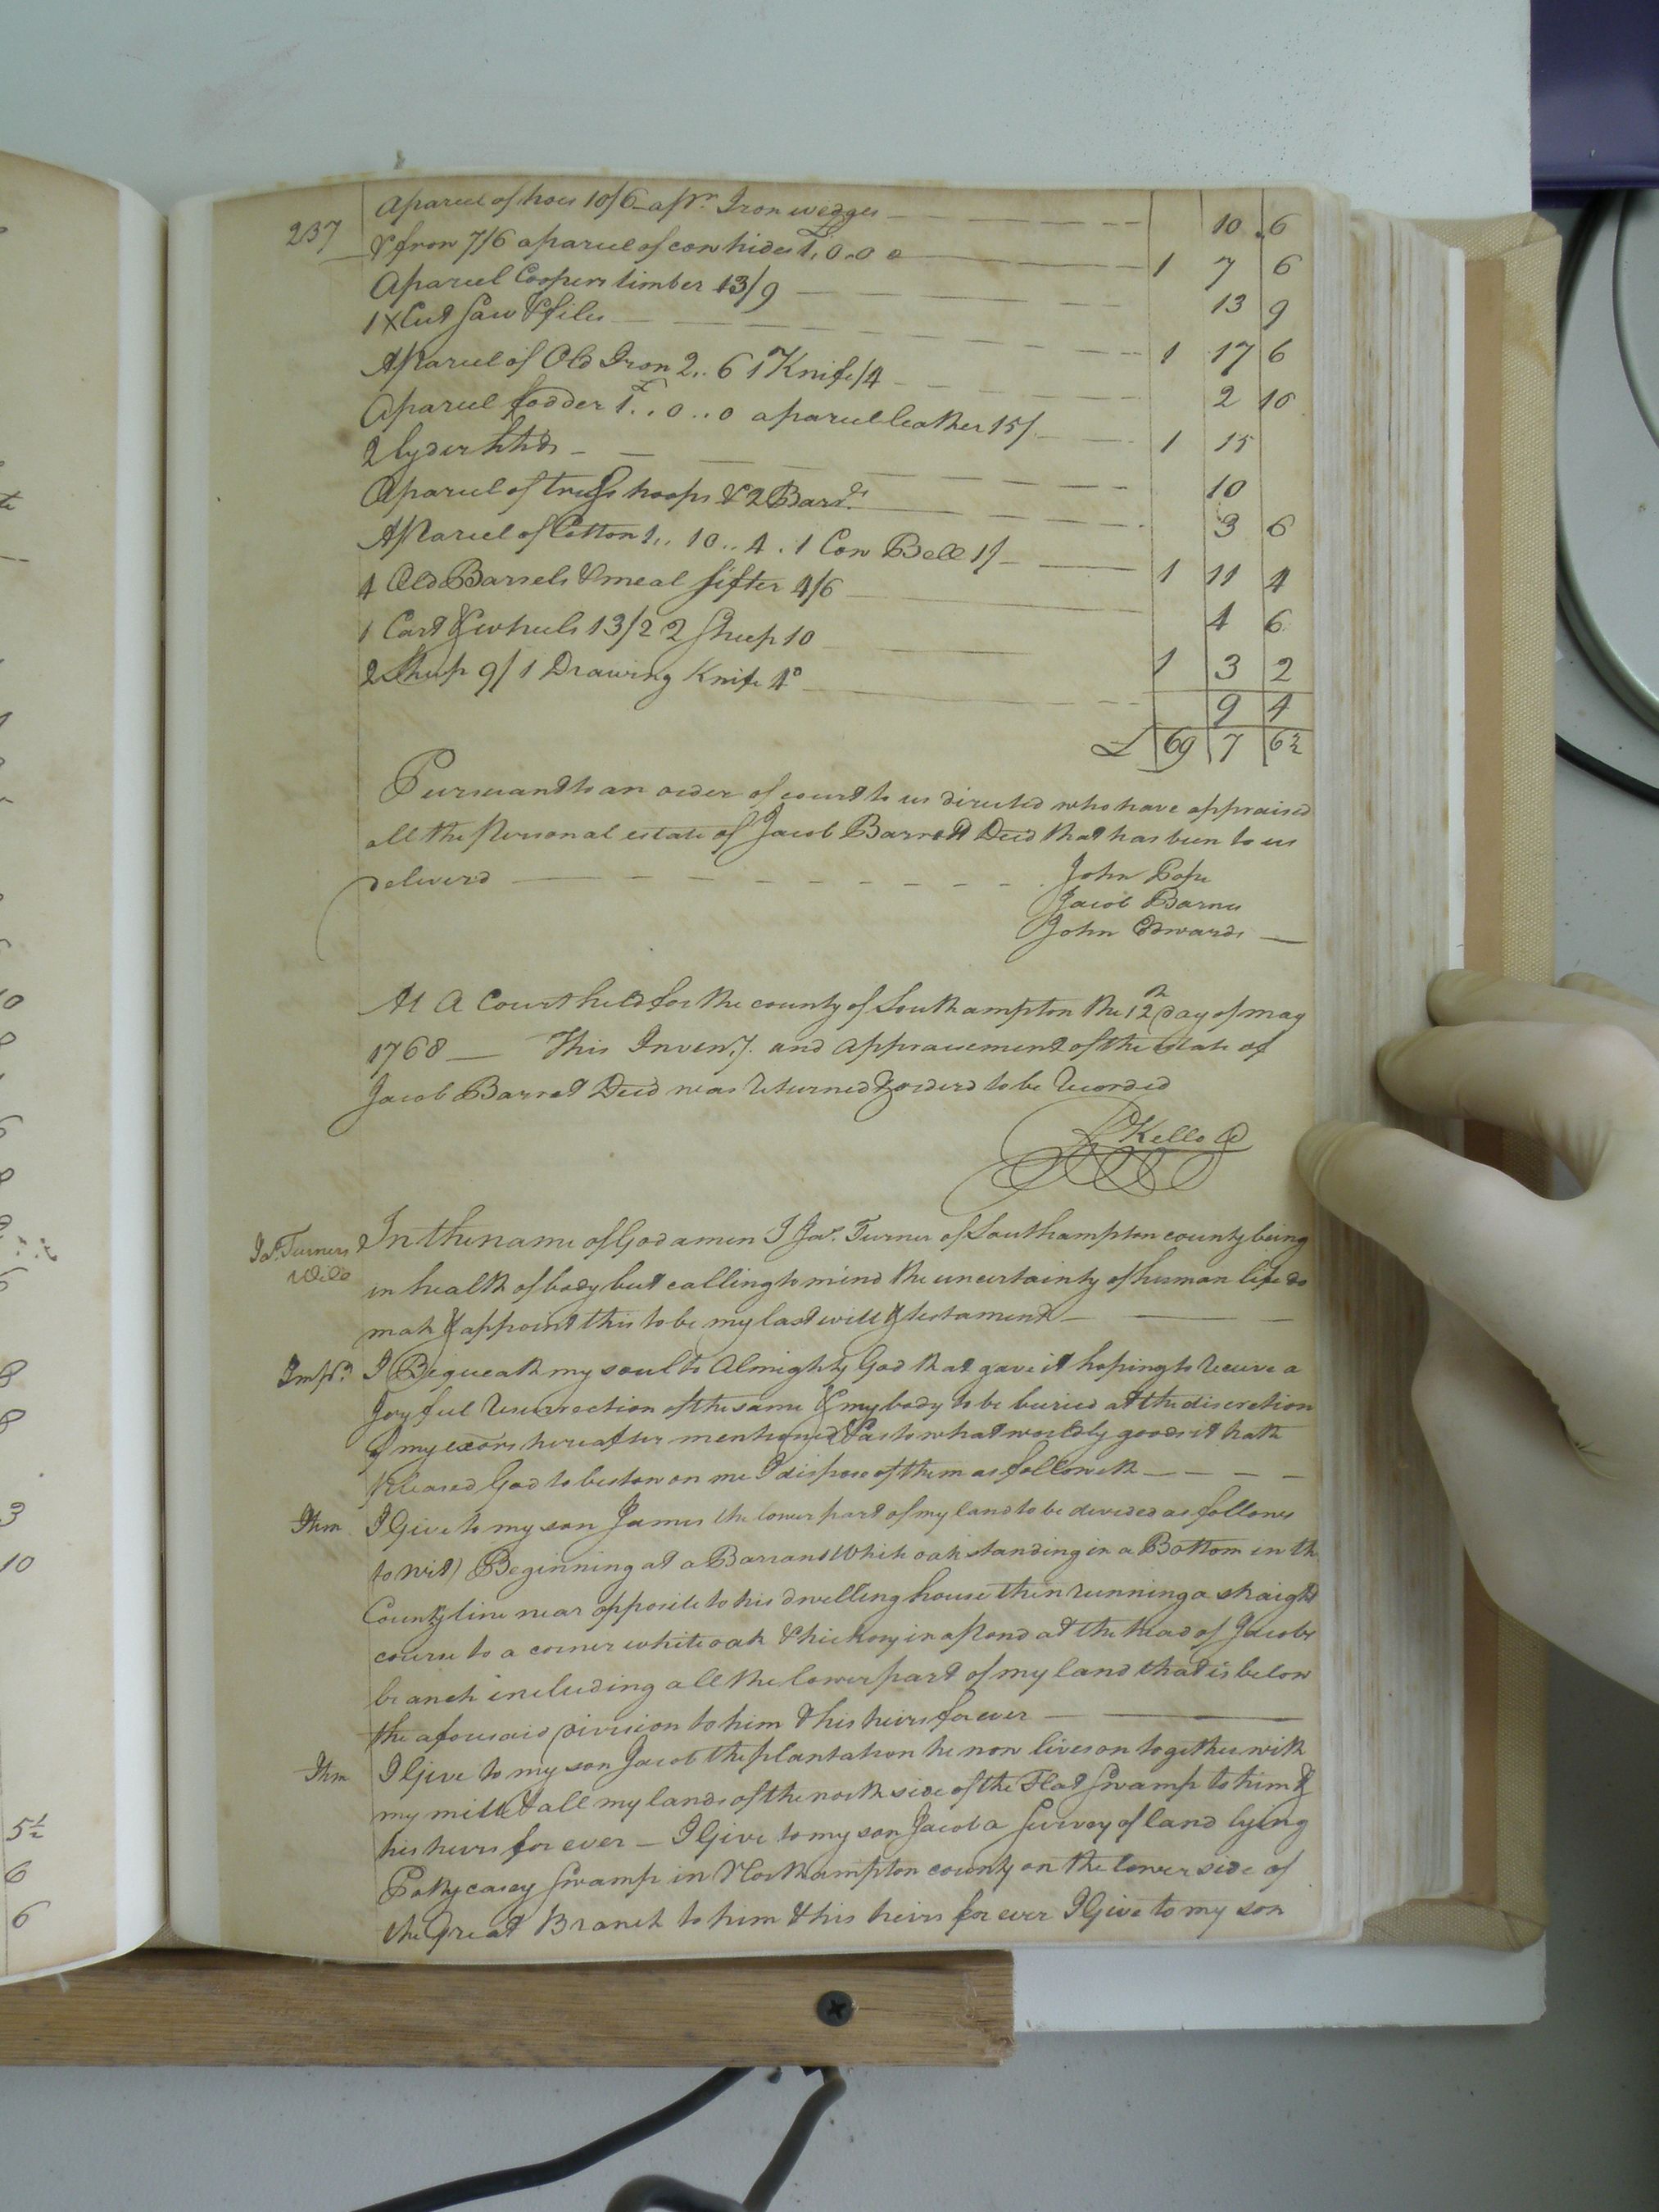 237
A parcel of hoes 10/6 a pr. Iron wedges 10 6
& Iron 7/6 a parcel of cow hides £1,0..0 1 7 6
A parcel Coopers timber 13/9 13 9
1 X Cut Saw & files 1 17 6
A Parcel of Old Iron 2..6 1 Knife /4 2 10
A parcel fodder £1..0..0 a parcel leather 15/ 1 15
2 Cyder hhds 10
A parcel of truss hoops & 2 Barrls. 3 6
A Parcel of Cotton 1..10..4. 1 Cow Bell 1/ 1 11 4
4 Old Barrels & meal sifter 4/6 4 6
1 Cart & wheels 13/2 2 Sheep 10 1 3 2
2 Sheep 9/ 1 Drawing Knife 4d 9 4
£ 69 7 6½
Pursuant to an order of court to us directed who have appraised
all the Personal estate of Jacob Barrott Decd that has been to us
deliverd
John Pope
Jacob Barnes
John Edwards
At A Court held for the county of Southampton the 12th day of may
1768 This Inventy. and appraisement of the estate of
Jacob Barrot Decd was returned & orderd to be recorded
R Kello C
Jas. Turners
Will
In the name of God amen I Jas. Turner of Southampton county being
in health of body but calling to mind the uncertainty of human life do
make & appoint this to be my last will & testament
Imps. I Bequeath my soul to Almighty God that gave it hoping to receive a
Joyful resurrection of the same & my body to be buried at the discretion
of my exors hereafter mentioned & as to what worldly goods it hath
Pleased God to bestow on me I dispose of them as followeth
Item I Give to my son James the lower part of my land to be devided as follows
to wit) Beginning at a Barrand White oak standing in a Bottom in th
County line near opposite to his dwelling house then running a straight
course to a corner white oak & hickory in a Pond at the head of Jacobs
branch including all the lower part of my land that is below
the aforesaid division to him & his heirs forever
Item I Give to my son Jacob the plantation he now lives on together with
my mill & all my lands of the north side of the Flat Swamp to him &
his heirs for ever — I Give to my son Jacob a Survey of land lying
Pottycasey Swamp in Northampton county on the lower side of
the Great Branch to him & his heirs for ever I Give to my son
5½
6
6